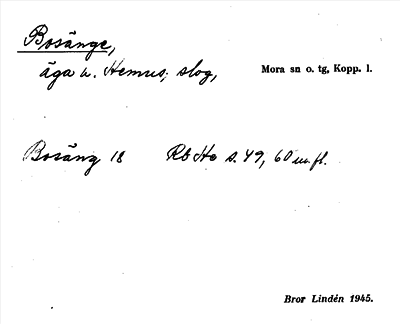 Bosänge,
äga u. Hemus; slog,
Mora sn o. tg, Kopp. l.
Bosäng 18 Rb Ho s. 49, 60 m. fl.
Bror Lindén 1945.